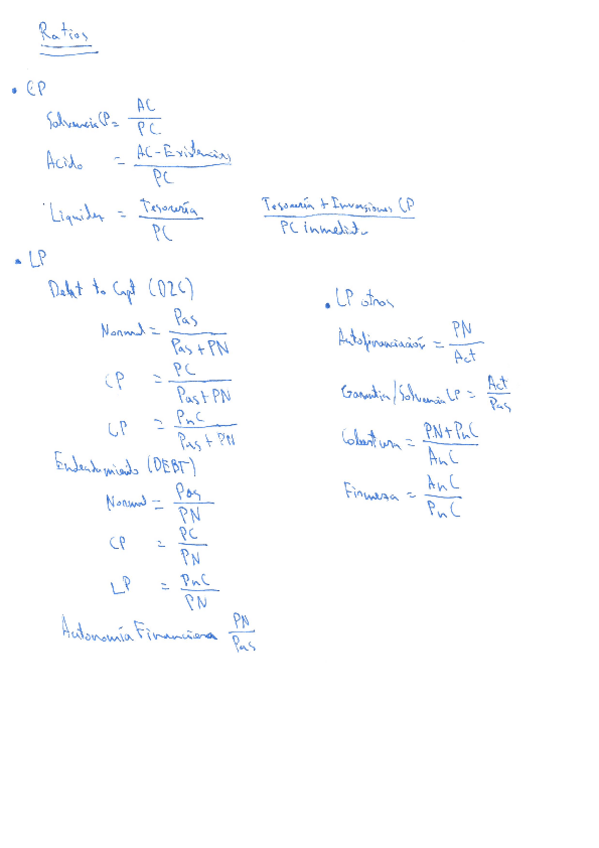 Ratios
• CP
Solvencia CP = AC / PC
Acido = AC - Existencias / PC
Liquidez = Tesorería / PC
Tesorería + Inversiones CP / PC inmediato
• LP
Debt to Capt (D2C)
Normal = Pas / Pas + PN
CP = PC / Pas + PN
LP = PnC / Pas + PN
Endeudamiento (DEBT)
Normal = Pas / PN
CP = PC / PN
LP = PnC / PN
Autonomía Financiera PN / Pas
• LP otros
Autofinanciación = PN / Act
Garantía/Solvencia LP = Act / Pas
Cobertura = PN + PnC / AnC
Firmeza = AnC / PnC